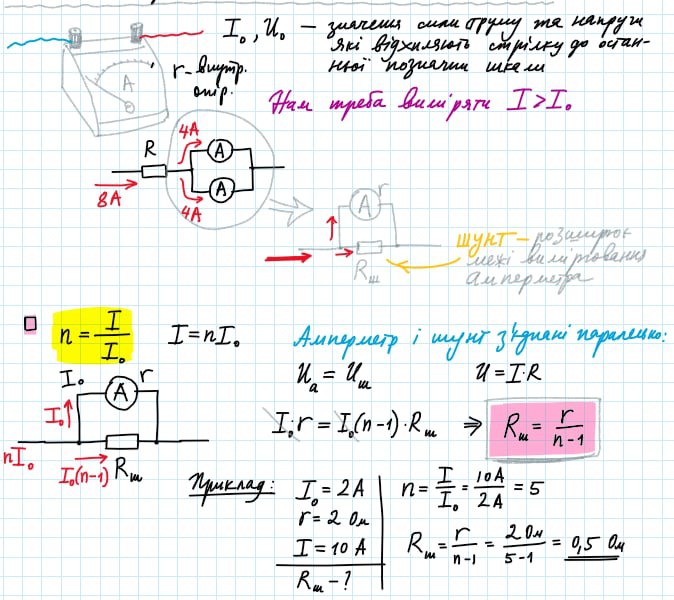 I₀, U₀ – значення сили струму та напруги
які відхиляють стрілку до остан-
ньої позначки шкали
r – внутр.
опір.
A
Нам треба виміряти I > I₀
R
4A
A
8A
A
4A
A
r
Rш
шунт – розширює
межі вимірювання
амперметра
n = I/I₀
I = nI₀
Амперметр і шунт з'єднані паралельно:
Uа = Uш
U = I·R
I₀·r = I₀(n-1)·Rш ⇒ Rш = r/(n-1)
I₀
A
r
I₀
nI₀
I₀(n-1)
Rш
Приклад:
I₀ = 2А
r = 2 Ом
I = 10 А
Rш - ?
n = I/I₀ = 10А/2А = 5
Rш = r/(n-1) = 2 Ом/(5-1) = 0,5 Ом